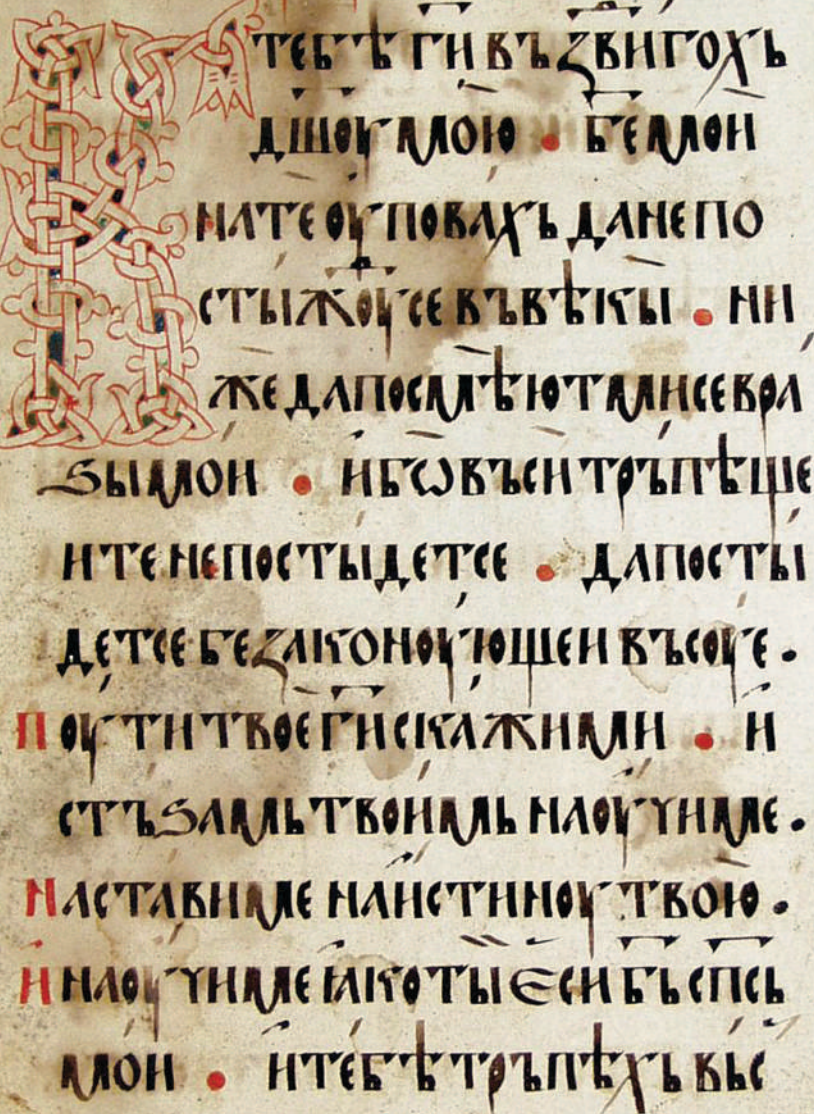 К тебѣ г҃и въꙁвигохь
д҃шоу мою • б҃е мои
на те оуповахь да не по
стыжоу се въ вѣкы • ни
же да посмѣют ми се вра
ѕы мои • ибѡ въси трьпѣще
и те не постыдет се • да посты
дет се беꙁаконоующеи въсоуе •
Поути твое г҃и скажи ми • и
стъѕамь твоимь наоучи ме •
Настави ме на истиноу твою •
И наоучи ме ꙗко ты еси б҃ь сп҃сь
мои • и тебѣ трьпѣхь вьс